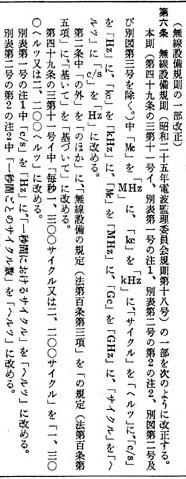 （無線設備規則の一部改正）
第六条　無線設備規則（昭和二十五年電波監理委員会規則第十八号）の一部を次のように改正する。
本則（第四十九条の三第十一号イ、別表第一号の注1、別表第二号の第2の注2、別図第二号及
び別図第三号を除く。）中「Mc」を「MHz」に、「kc」を「kHz」に、「サイクル」を「ヘルツ」に、「c/s」
を「Hz」に、「kc」を「kHz」に、「Mc」を「MHz」に、「Gc」を「GHz」に、「サイクル」を「ヘ
ルツ」に、「c/s」を「Hz」に改める。
第二条中「の外」を「のほか」に、「無線設備の規定（法第百条第三項」を「の規定（法第百条第
五項」に、「基いて」を「基づいて」に改める。
第四十九条の三第十一号イ中「毎秒一、三〇〇サイクル又は二、二〇〇サイクル」を「一、三〇
〇ヘルツ又は二、二〇〇ヘルツ」に改める。
別表第一号の注1中「c/s」を「Hz」に、「一秒間におけるサイクル」を「ヘルツ」に改める。
別表第二号の第2の注2中「一秒間ごとのサイクル数」を「ヘルツ」に改める。